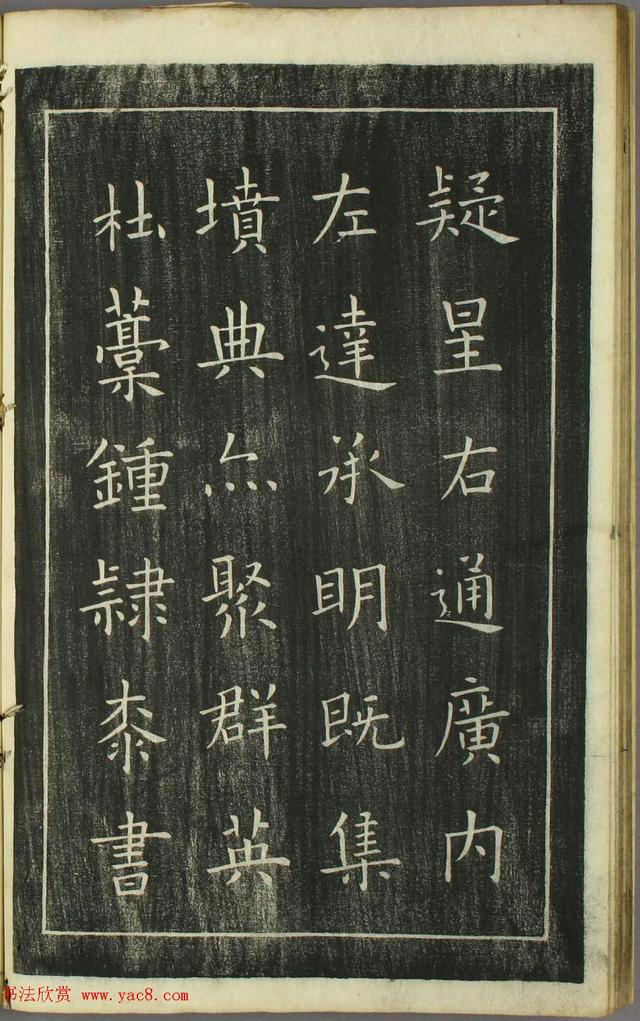 疑星右通廣内
左達承明既集
墳典亦聚群英
杜藁鍾隷桼書
书法欣赏 www.yac8.com